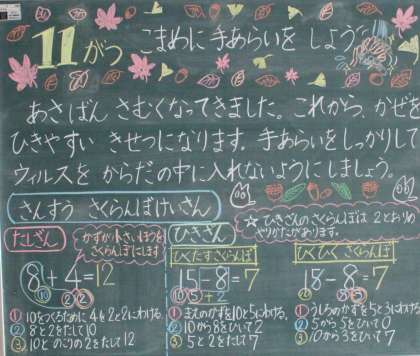 11がつ こまめに 手あらいを しよう
あさばん さむくなってきました。これから、かぜを
ひきやすい きせつになります。手あらいをしっかりして
ウィルスを からだの中に 入れないように しましょう。
さんすう さくらんぼけいさん
☆ ひきざんの さくらんぼは 2とおりの
やりかたが あります。
たしざん
かずが 小さいほうを
さくらんぼにします
8+4=12
10 2 2
①10をつくるために 4を2と2にわける。
②8と2をたして10
③10と のこりの2をたして 12
ひきざん
ひくたすさくらんぼ
15-8=7
10 5 +2
①まえのかずを 10と5にわける。
②10から8をひいて2
③5と2をたして7
ひくひく さくらんぼ
15-8=7
5 3
①うしろのかずを 5と3にわける
②5から5をひいて0
③10から3をひいて7